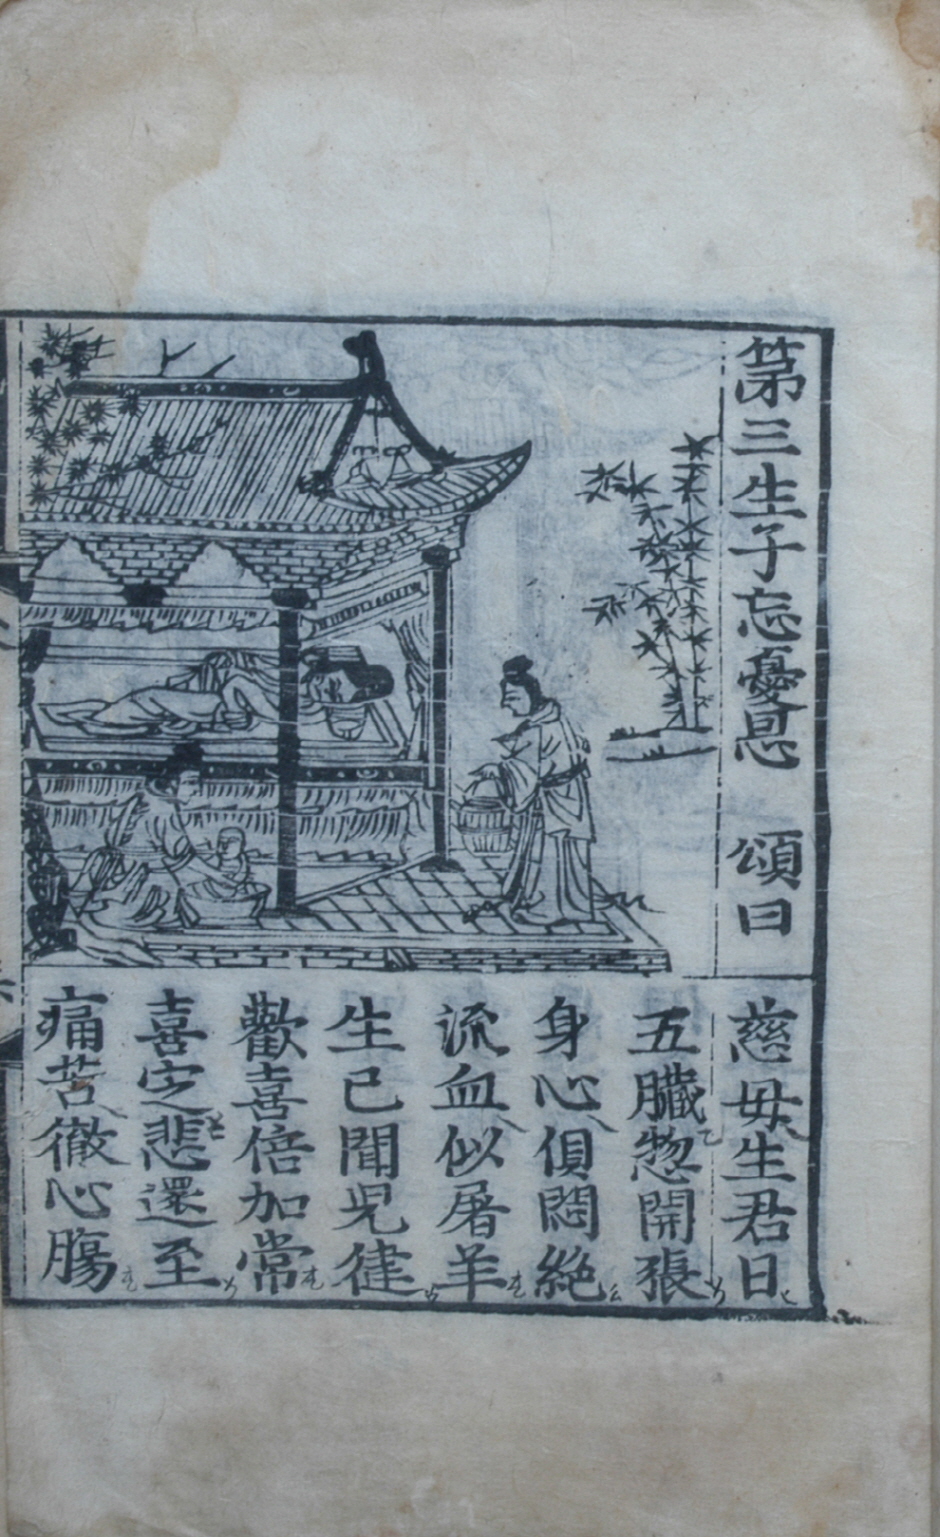 苐三生子忘憂恩　頌曰
慈母生君日
五臟惣開張
身心俱悶絶
流血似屠羊
生已聞児徤
歡喜倍加常
喜定悲還至
痛苦徹心膓